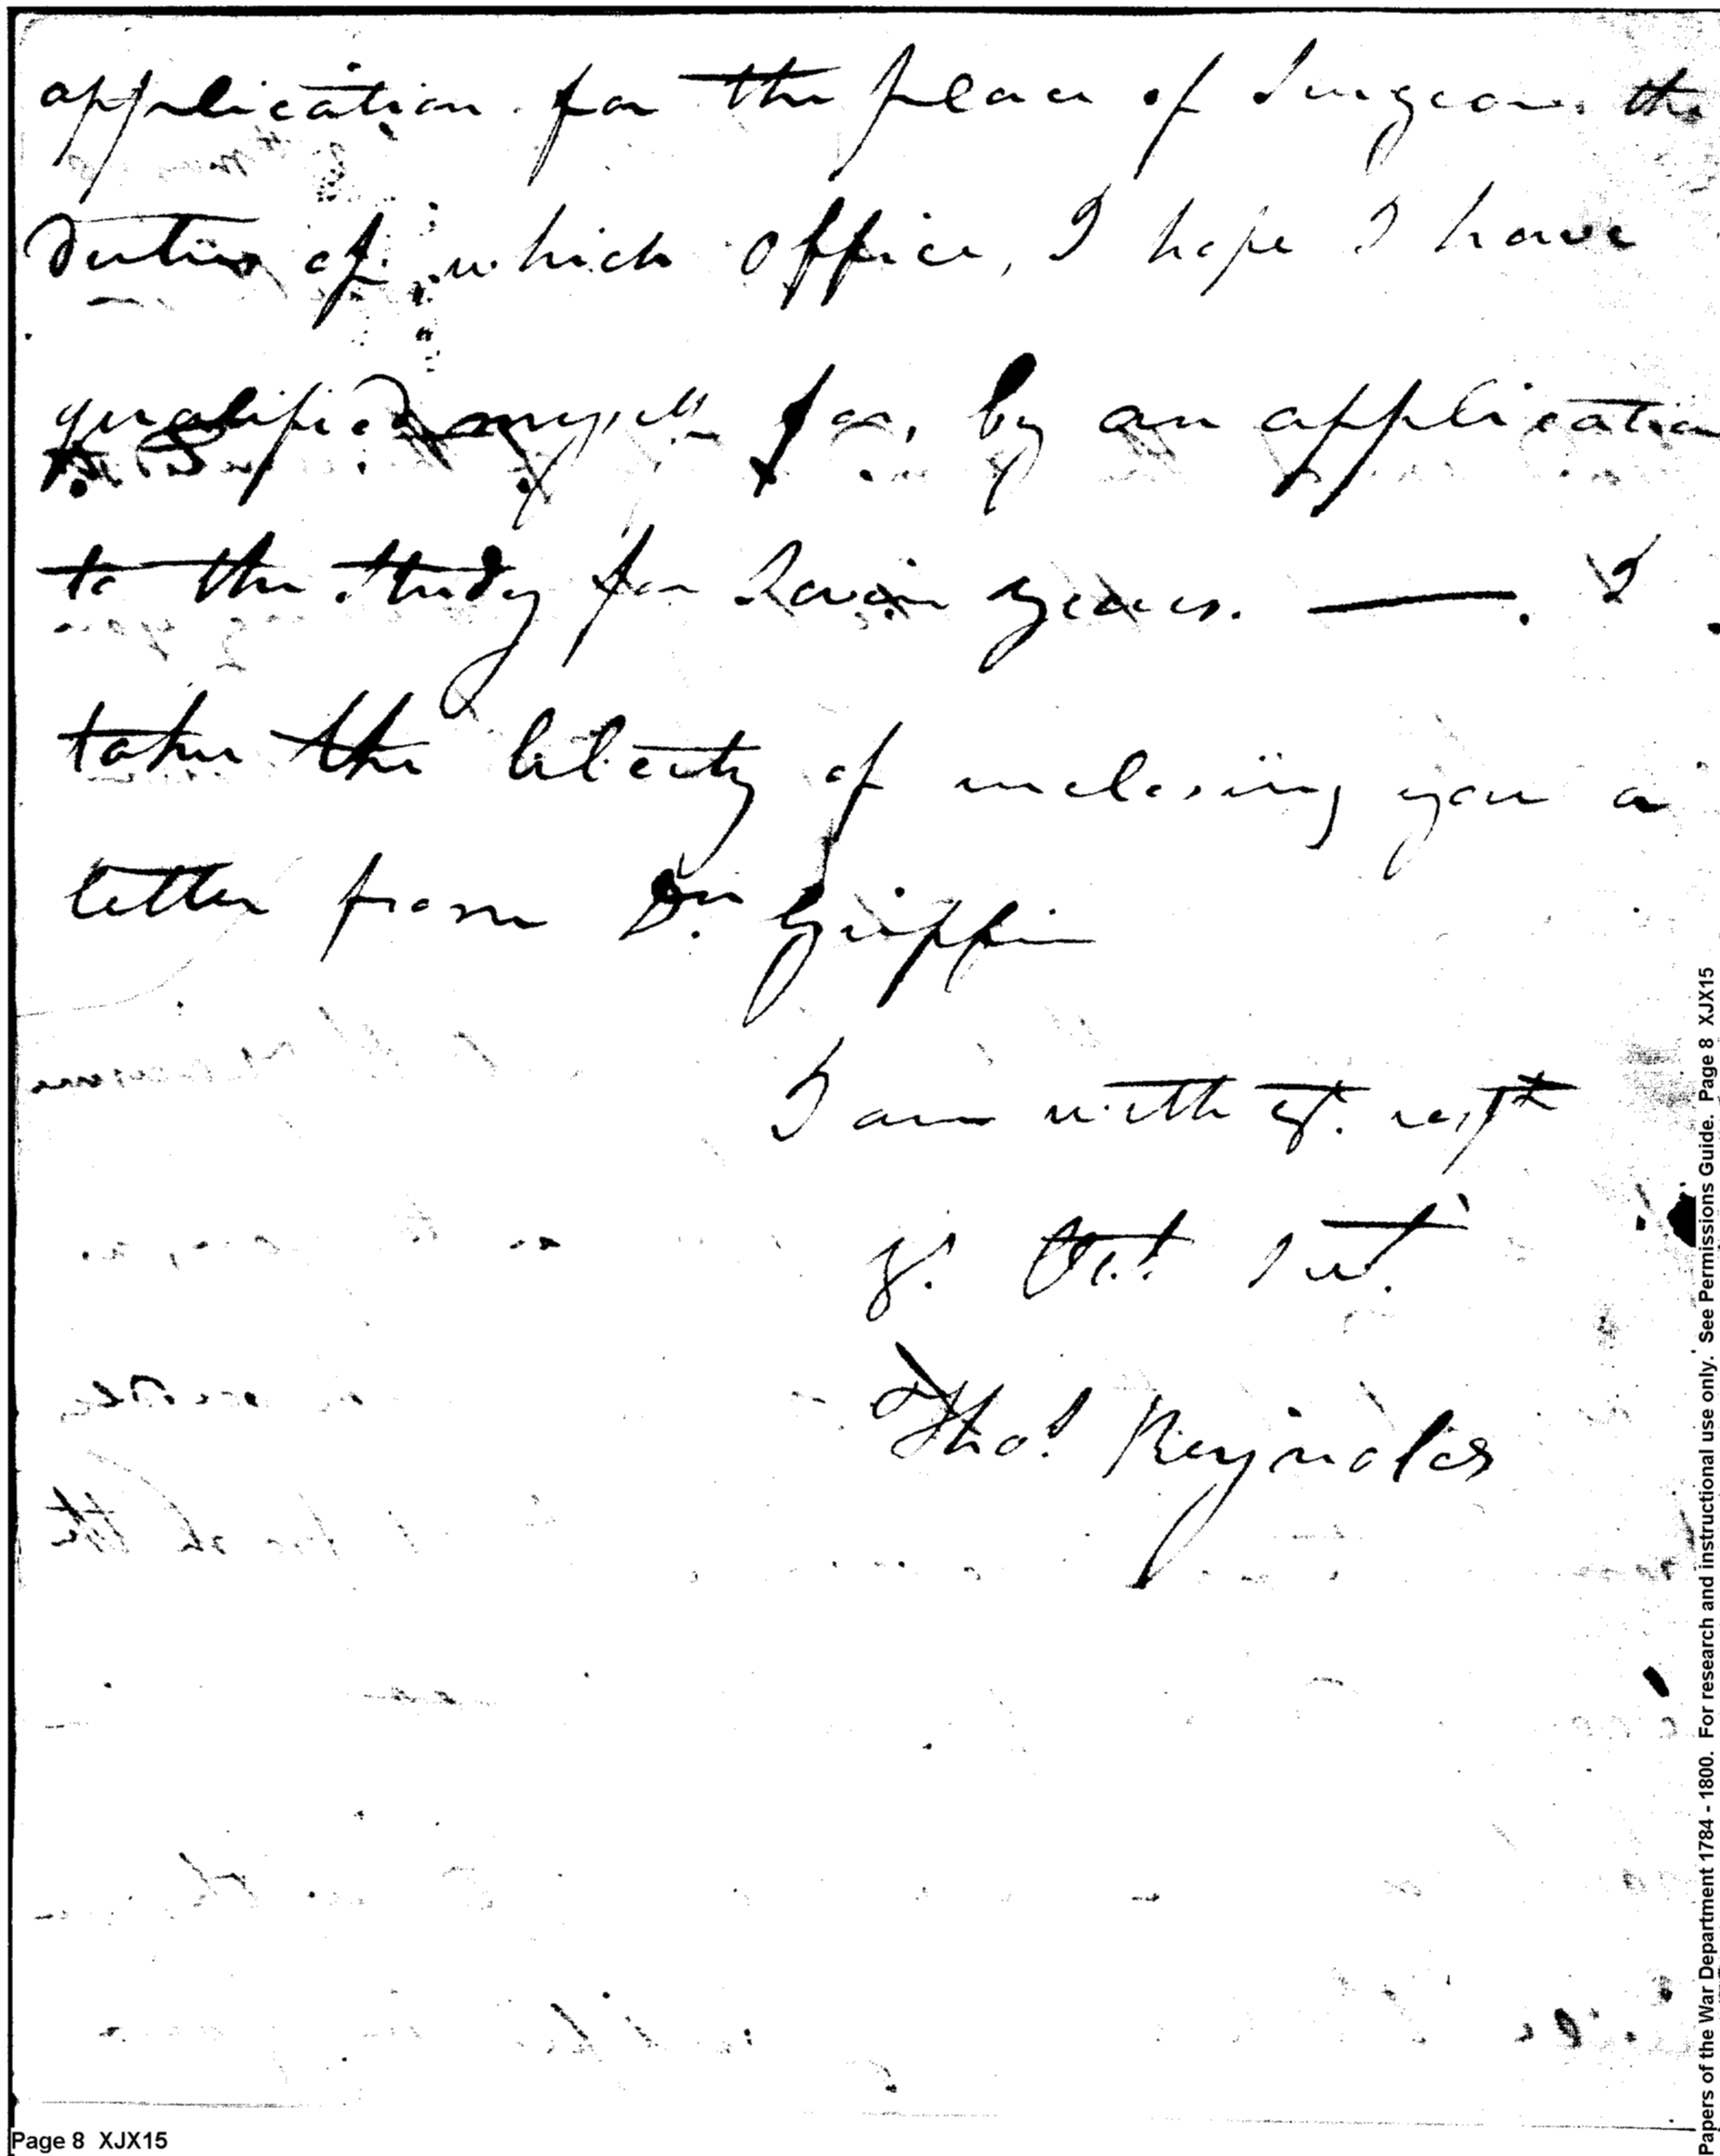 application for the place of Surgeon. the
Duties of which office, I hope I have
qualified myself for, by an application
to the study for years. —— . I
take the liberty of inclosing you a
letter from Dr. Griffin
I am with gt. respt
yr. Obt. Svt.
Thos. Reynolds
Page 8 XJX15
Papers of the War Department 1784 - 1800. For research and instructional use only. See Permissions Guide. Page 8 XJX15